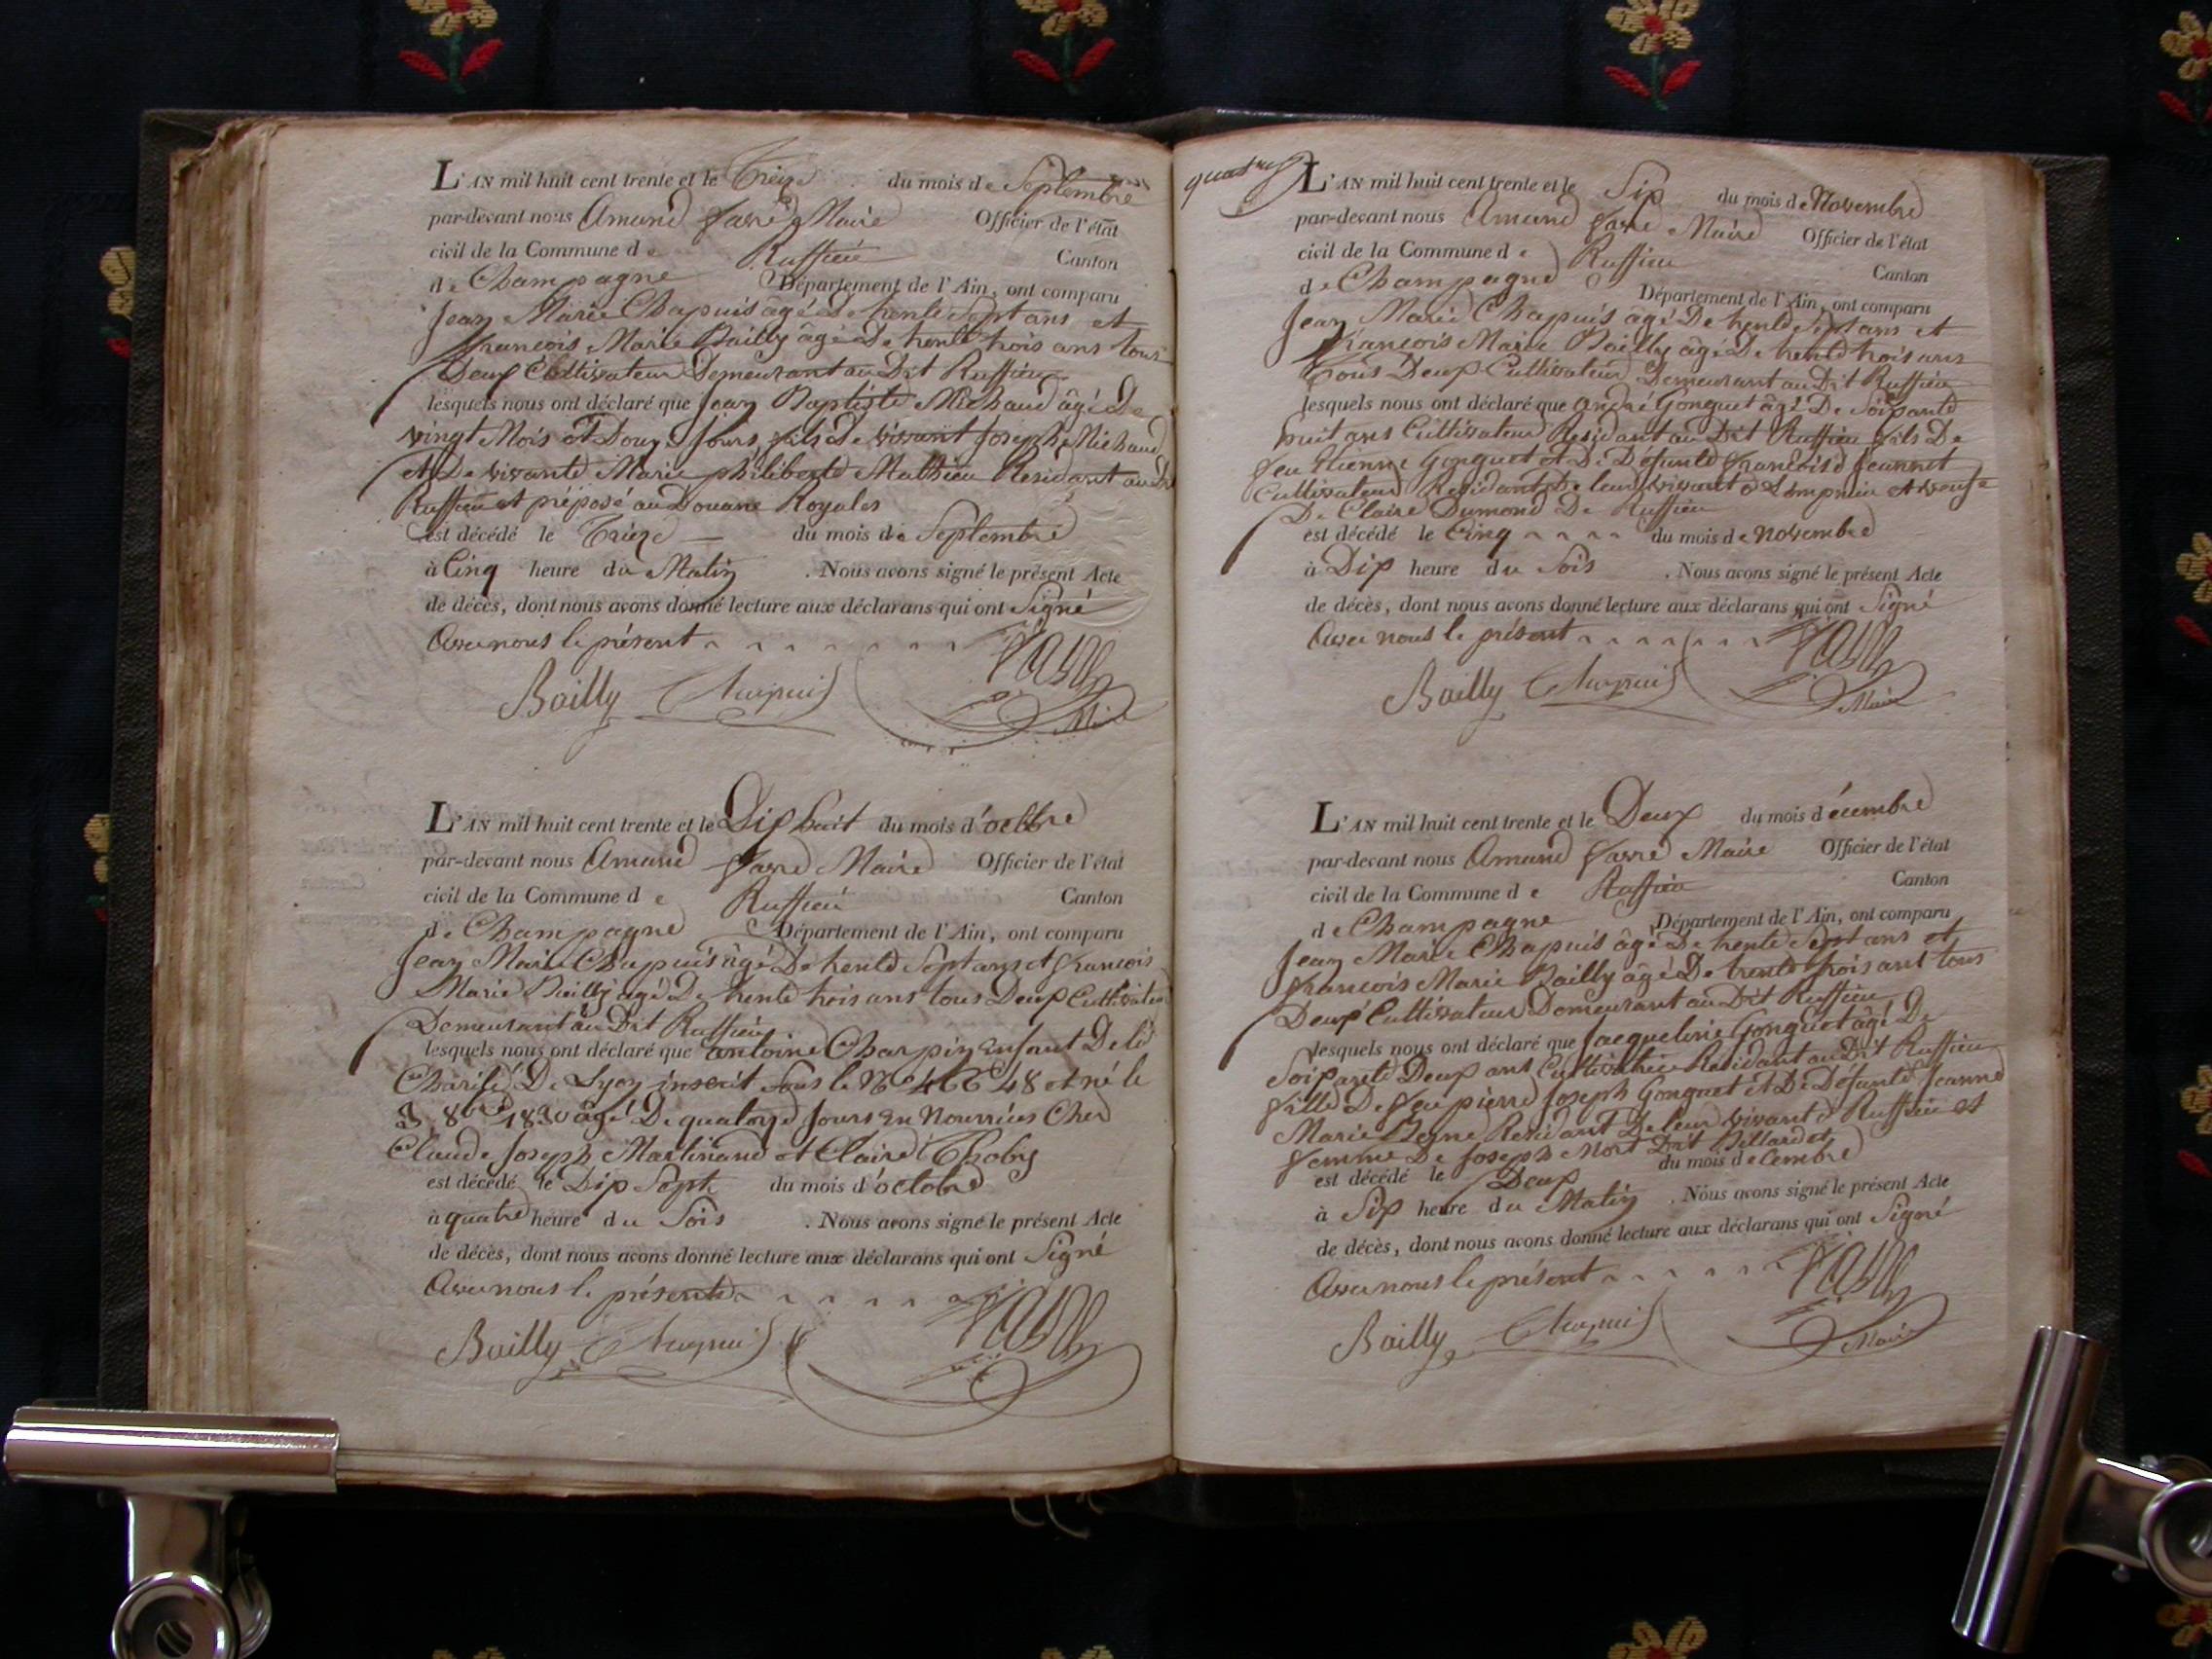 L'AN mil huit cent trente et le Treize du mois de Septembre
par-devant nous Amand favre Maire Officier de l'état
civil de la Commune de Ruffieu Canton
de Champagne Département de l'Ain, ont comparu
Jean Marie Chapuis âgé De trente Sept ans et
francois Marie Bailly âgé De trente trois ans tous
Deux Cultivateur Demeurant au Dit Ruffieu
lesquels nous ont déclaré que Jean Baptiste Michaud âgé De
vingt Mois et Douze Jours fils De vivant Joseph Michaud
et De vivante Marie philiberte Mathieu Residant au Dt
Ruffieu et préposé au Douane Royales
est décédé le Treize du mois de Septembre
à Cinq heure du Matin . Nous avons signé le présent Acte
de décès, dont nous avons donné lecture aux déclarans qui ont Signé
Avec nous le présent
Bailly Chapuis favre
Maire
L'AN mil huit cent trente et le Dix huit du mois d'octbre
par-devant nous Amand favre Maire Officier de l'état
civil de la Commune de Ruffieu Canton
de Champagne Département de l'Ain, ont comparu
Jean Marie Chapuis âgé De trente Sept ans et francois
Marie Bailly âgé De trente trois ans tous Deux Cultivateur
Demeurant au Dit Ruffieu
lesquels nous ont déclaré que antoine Charpin Enfant De la
Charité De Lyon inscrit Sous le No 46648 et né le
3 8bre 1830 âgé De quatorze Jours en Nourrices Cher
Claude Joseph Martinand et Claire Thobie
est décédé le Dix Sept du mois d'octobre
à quatre heure du Soir . Nous avons signé le présent Acte
de décès, dont nous avons donné lecture aux déclarans qui ont Signé
Avec nous le présente
Bailly Chapuis favre
L'AN mil huit cent trente et le Six du mois de Novembre
par-devant nous Amand favre Maire Officier de l'état
civil de la Commune de Ruffieu Canton
de Champagne Département de l'Ain, ont comparu
Jean Marie Chapuis âgé De trente Sept ans et
francois Marie Bailly âgé De trente trois ans
Tous Deux Cultivateur Demeurant au Dit Ruffieu
lesquels nous ont déclaré que andré Gonguet âgé De Soixante
huit ans Cultivateur Residant au Dit Ruffieu fils De
feu Etienne Gonguet et De Défunte francoise Jeannet
Cultivateur Residant De leur vivant à Lompnieu et veuf
De Claire Dumond De Ruffieu
est décédé le Cinq du mois de Novembre
à Dix heure du Soir . Nous avons signé le présent Acte
de décès, dont nous avons donné lecture aux déclarans qui ont Signé
Avec nous le présent
Bailly Chapuis favre
Maire
L'AN mil huit cent trente et le Deux du mois d'écembre
par-devant nous Amand favre Maire Officier de l'état
civil de la Commune de Ruffieu Canton
de Champagne Département de l'Ain, ont comparu
Jean Marie Chapuis âgé De trente Sept ans et
francois Marie Bailly âgé De trente trois ans tous
Deux Cultivateur Demeurant au Dit Ruffieu
lesquels nous ont déclaré que Jacqueline Gonguet âgé De
Soixante Deux ans Cultivatrice Residant au Dit Ruffieu
fille De feu pierre Joseph Gonguet et De Défunte Jeanne
Marie Residant De leur vivant à Ruffieu et
femme De Joseph Mort Dit Billardet
est décédé le Deux du mois decembre
à Six heure du Matin . Nous avons signé le présent Acte
de décès, dont nous avons donné lecture aux déclarans qui ont Signé
Avec nous le présent
Bailly Chapuis favre
Maire